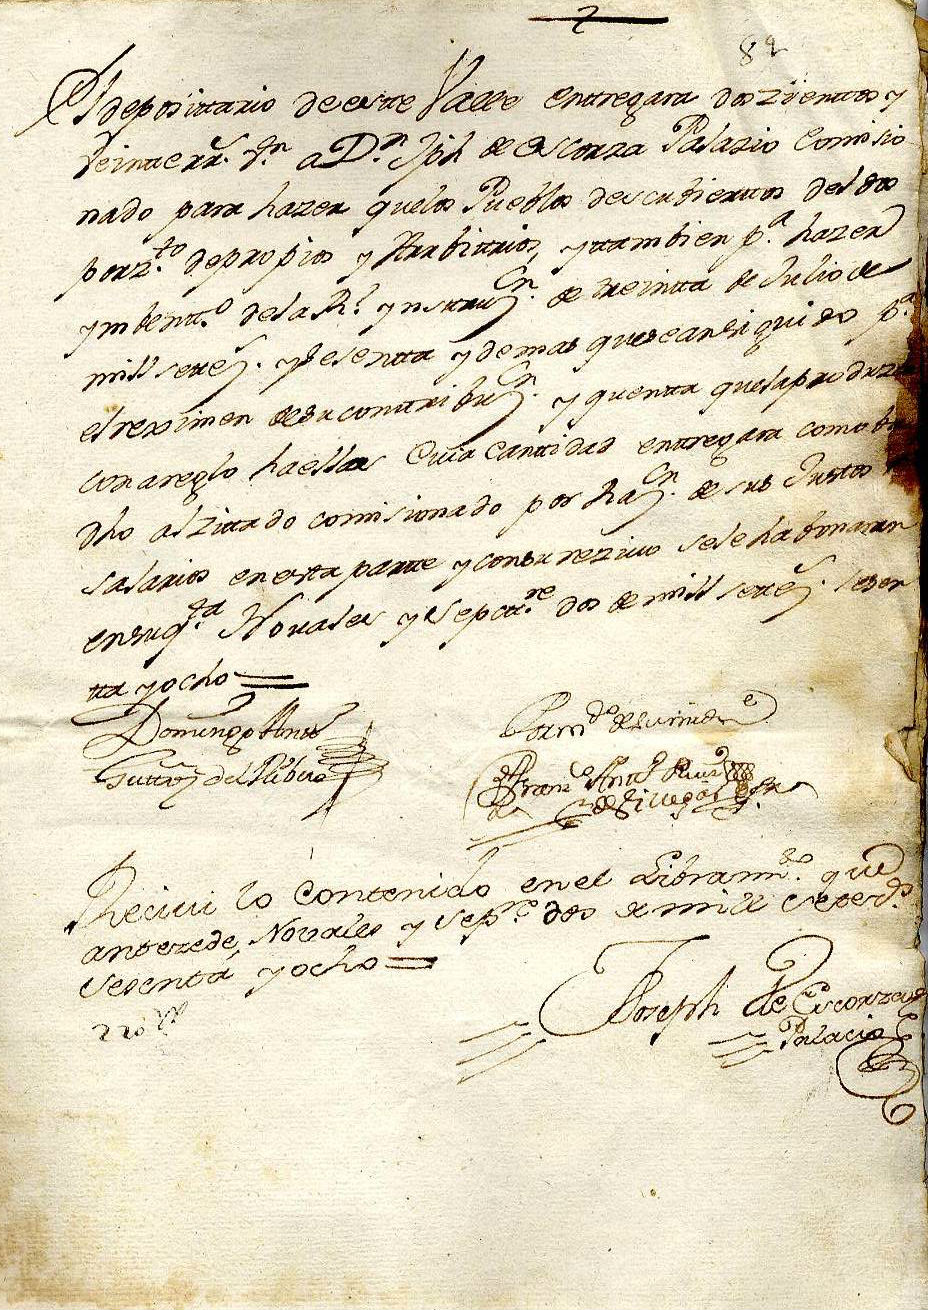 82
El depositario de este Valle entregara doszientos y
Veinte rr.s Vn a Dn Jph de Escorza Palazio Comisio
nado para hazer quelos Pueblos descubiertos del dos
porz.to depropios y Arbitrios, ytambien p.a hazer
ymbent.o dela Rl. ynstruczn. de treinta de Julio de
mill setezs. ysesenta y demas quesean siguido p.a
el reximen desu contribuzn. y quenta quelaproduze
con areglo haellas Cuia Cantidad entregara como
dho alzitado comisionado por Razn. de sus Justos
salarios enesta parte yconsu rezivo sele habonaran
ensuq.ta Novales y Sepre. dos de mill setezs. sesen
ta yocho =
Domingo Antt.o
Gutrrz del Ribero
Por mdo. de su mrd
Franco. Anto. Ruiz
de Villegas
Recivi lo Contenido en el Libramto. que
antezede, Novales y Sepre. dos de mill setezs.
Sesenta, y ocho =
220 rs
Joseph de Escorza
Palacio